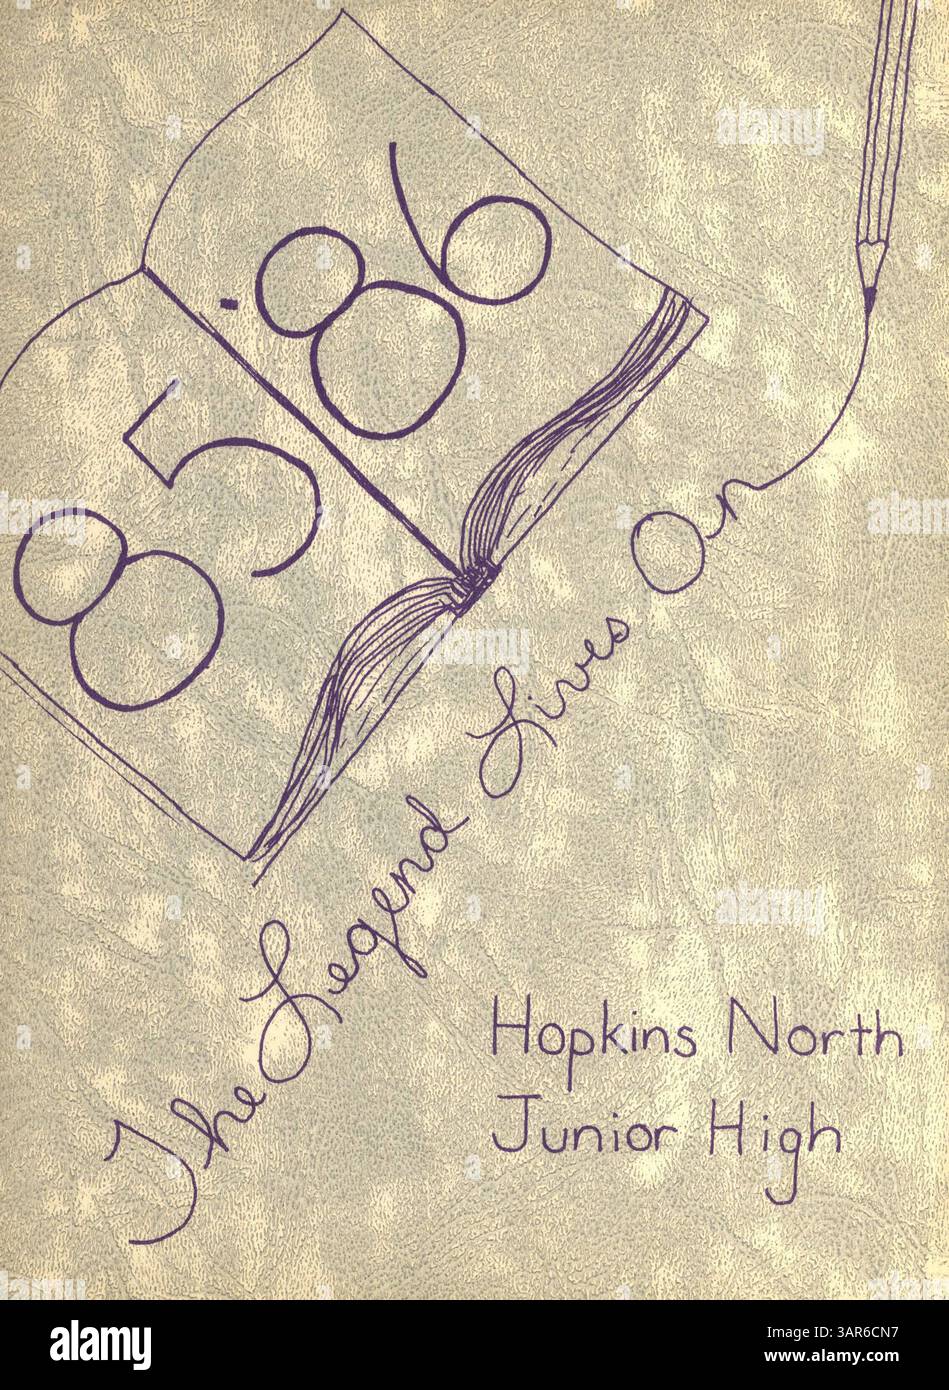 85·86
The Legend Lives On
Hopkins North
Junior High
alamy
Image ID: 3AR6CN7
www.alamy.com